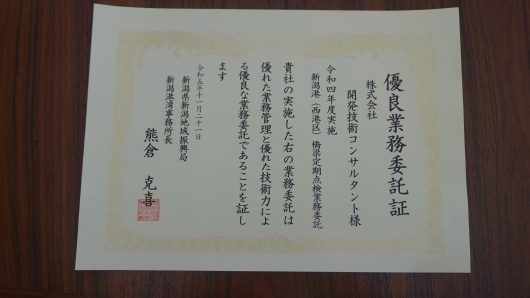 優良業務委託証
株式会社
開発技術コンサルタント様
令和四年度実施
新潟港（西港区）橋梁定期点検業務委託
貴社の実施した右の業務委託は
優れた業務管理と優れた技術力によ
る優良な業務委託であることを証し
ます
令和五年十一月二十一日
新潟県新潟地域振興局
新潟港湾事務所長
熊倉 克喜